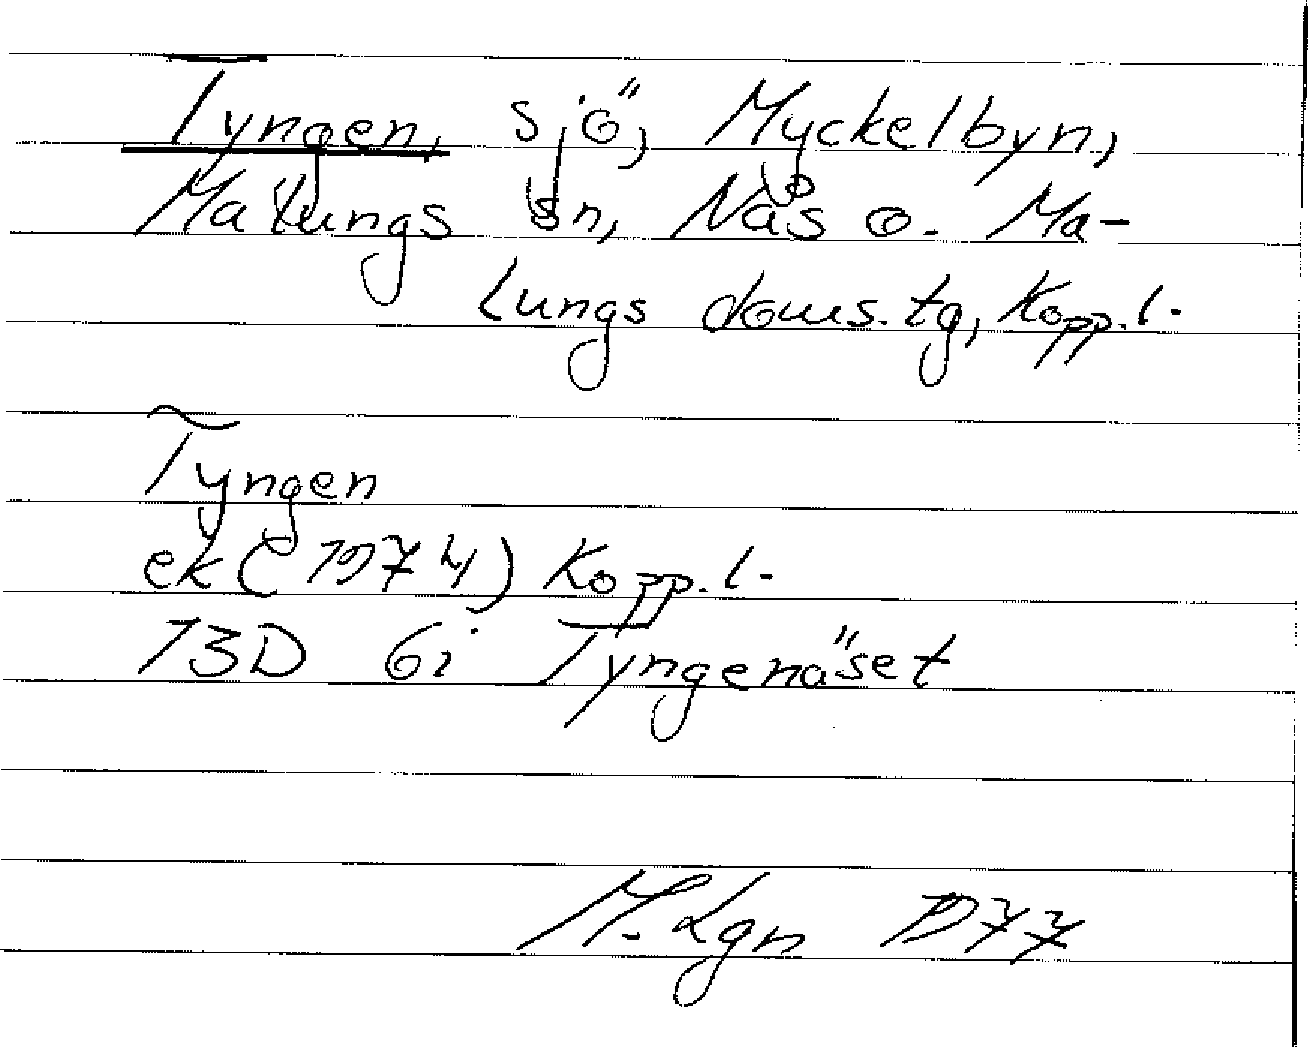 Tyngen, sjö, Myckelbyn,
Malungs sn, Nås o. Ma-
lungs doms. tg, Kopp. l.
Tyngen
ek (1974) Kopp. l.
13D 6i Tyngenäset
M. Lgn 1977